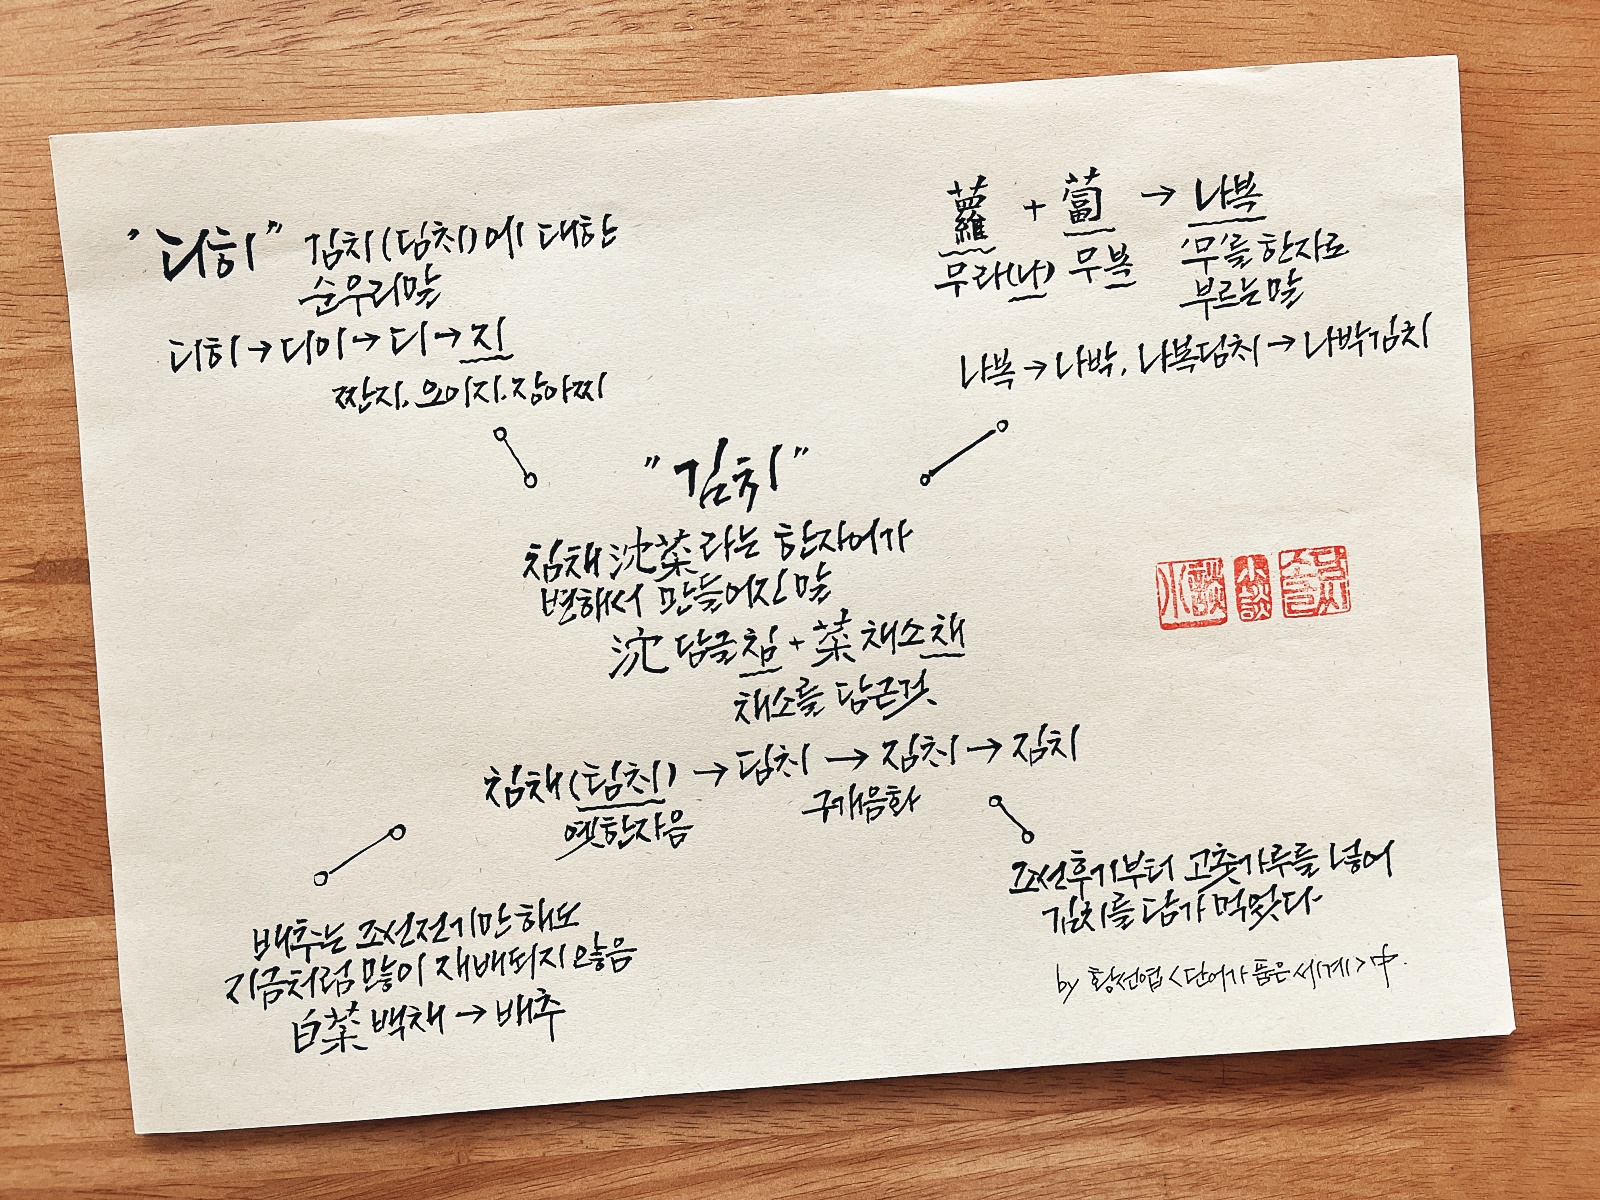 "디히" 김치(딤치)에 대한
순우리말
디히→디이→디→지
짠지, 오이지, 장아찌
蘿 + 蔔 → 나복
무라(나) 무복 '무'를 한자로
부르는 말
나복→나박, 나복딤치→나박김치
"김치"
침채 沈菜라는 한자어가
변해서 만들어진 말
沈 담글침 + 菜 채소채
채소를 담근것
침채(팀치) → 딤치 → 짐치 → 김치
옛한자음 구개음화
배추는 조선전기만 해도
지금처럼 많이 재배되지 않음
白菜 백채 → 배추
조선후기부터 고춧가루를 넣어
김치를 담가 먹었다
by 황선엽 <단어가 품은 세계> 中.